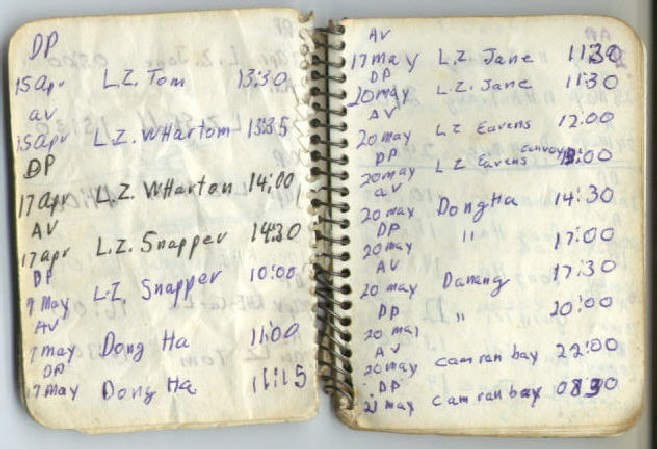 DP
15 apr L.Z. Tom 13:30
av
15 apr L.Z. WHartom 13:35
DP
17 apr L.Z. WHarton 14:00
AV
17 apr L.Z. Snapper 14:30
DP
7 May L.Z. Snapper 10:00
AV
7 may Dong Ha 11:00
DP
17 May Dong Ha 11:15
AV
17 may L.Z. Jane 11:30
DP
20 may L.Z. Jane 11:30
AV
20 may LZ Eavens 12:00
DP convoy
20 may LZ Eavens :00
av
20 may Dong Ha 14:30
DP
20 may " 17:00
AV
20 may Danang 17:30
DP
20 may " 20:00
AV
20 may cam ran bay 22:00
DP
21 may cam ran bay 08:30